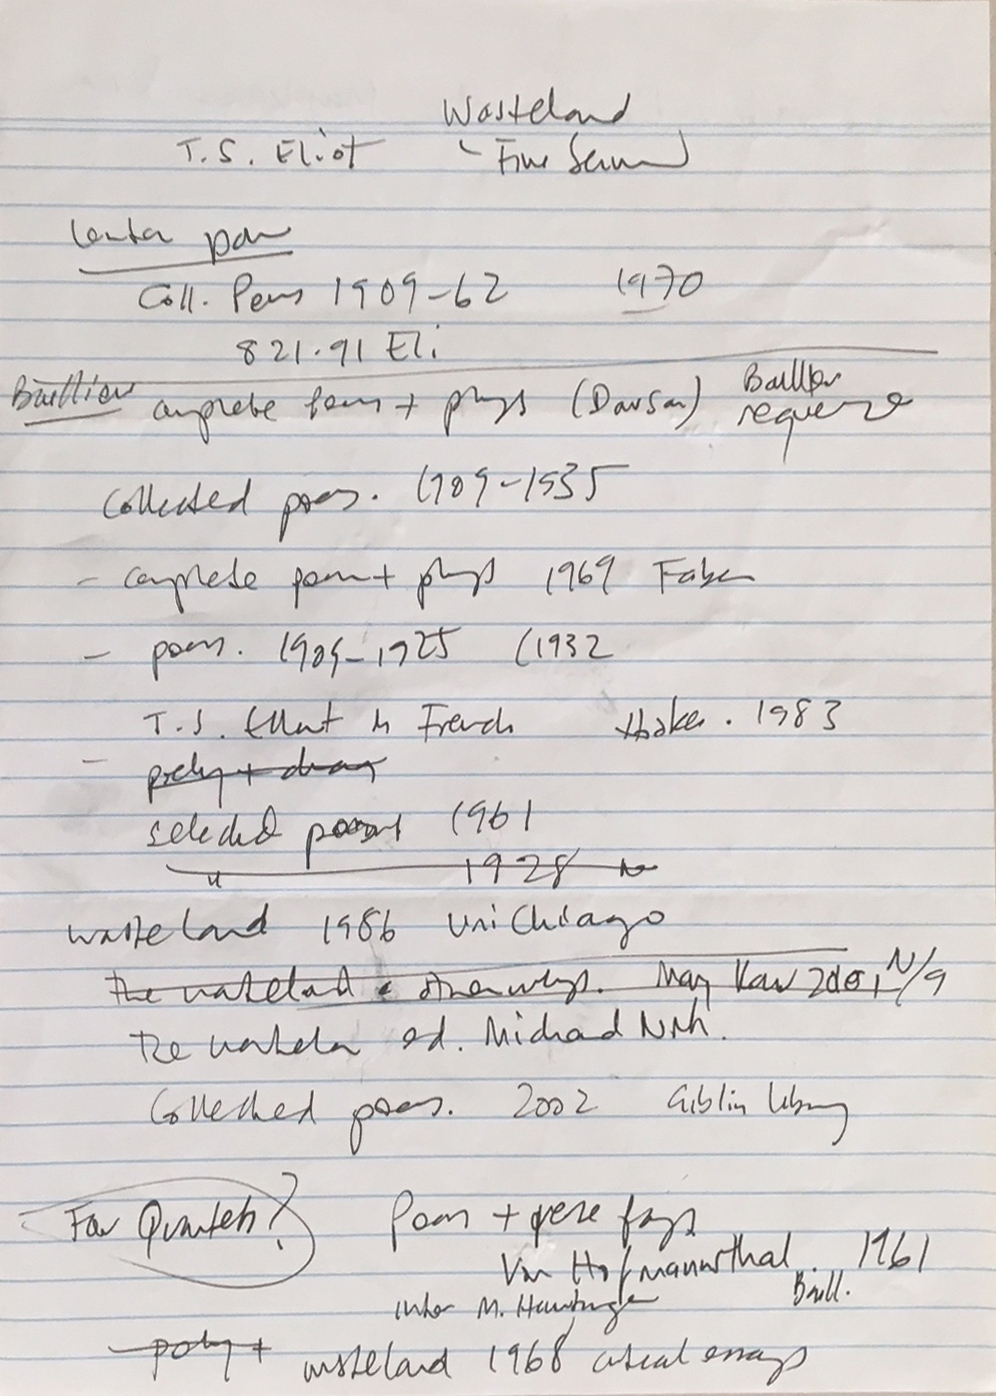 Wasteland
T.S. Eliot - Fire Sermon
Coll. Poems 1909-62 1970
821.91 Eli
Baillieu complete poems + plays (Dawson) Baillieu
Collected poems. 1909-1935
- complete poems + plays 1969 Faber
- poems. 1909-1925 (1932
T.S. Elliot in French 1983
- poetry + drama
selected poems 1961
" 1928
wasteland 1986 Uni Chicago
The wasteland & other writings. Mary Karr 2001 N/A
The wasteland ed. Michael North.
Collected poems. 2002 Giblin library
Four Quartets? Poems + verse plays
Von Hofmannsthal. 1961
intro M. Hamburger Baill.
poetry + wasteland 1968 critical essays